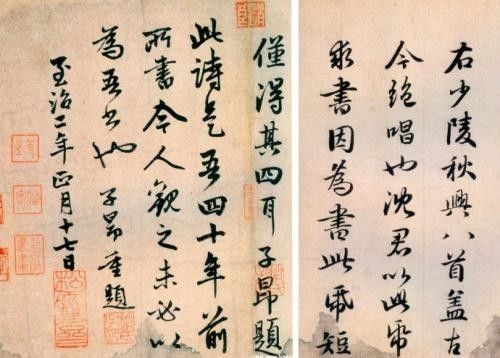 右少陵秋興八首盖古
今絶唱也沈君以此帋
求書因為書此帋短
僅得其四耳子昂題
此詩是吾四十年前
所書今人觀之未必以
為吾书也子昂重題
至治二年正月十七日